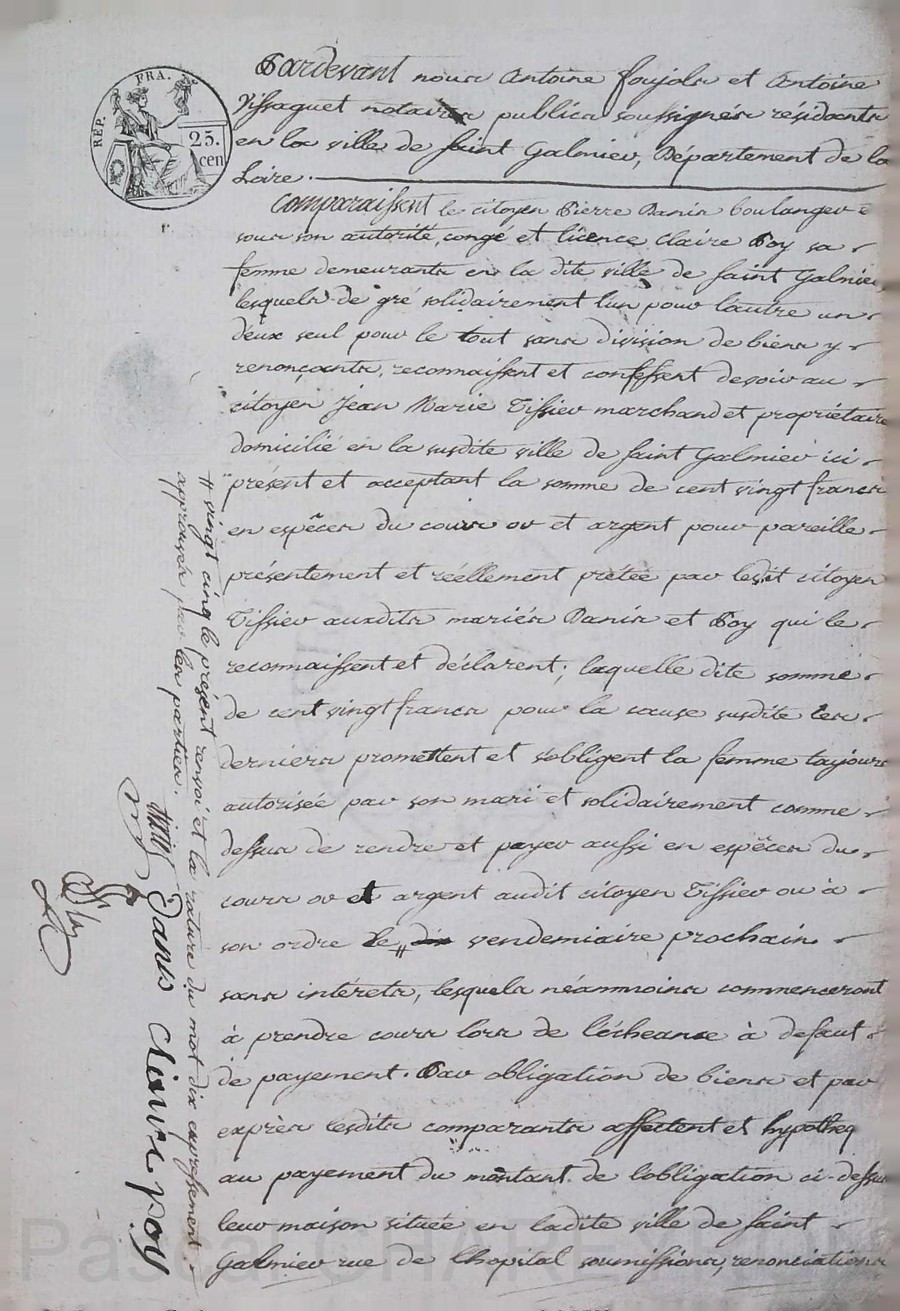 REP. FRA.
25.
cen
Pardevant nous Antoine foujols et Antoine
Vissaguet notaires publics soussignés résidants
en la ville de saint Galmier, Département de la
Loire.
Comparaissent le citoyen Pierre Danis boulanger e
sous son autorité, congé et licence Claire Poy sa
femme demeurants en la dite ville de saint Galmier,
lesquels de gré solidairement l'un pour l'autre un
d'eux seul pour le tout sans division de biens y
renonçants, reconnaissent et confessent devoir au
citoyen Jean Marie Tissier marchand et propriétaire
domicilié en la susdite ville de saint Galmier ici
présent et acceptant la somme de cent vingt francs
en espèces du cours or et argent pour pareille
présentement et réellement prêtée par ledit citoyen
Tissier auxdits mariés Danis et Poy qui le
reconnaissent et déclarent; laquelle dite somme
de cent vingt francs pour la cause susdite les
derniers promettent et s'obligent la femme toujours
autorisée par son mari et solidairement comme
dessus de rendre et payer aussi en espèces du
cours or et argent audit citoyen Tissier ou à
son ordre le # dix vendemiaire prochain
sans intérêts, lesquels néanmoins commenceront
à prendre cours lors de l'écheance à defaut
de payement. Par obligation de biens et par
exprès lesdits comparants affectent et hypotheq
au payement du montant de l'obligation ci-dessus
leur maison située en ladite ville de saint
Galmier rue de l'hopital soumissions, renonciations
# vingt cinq le présent renvoi et la rature du mot dix expressement
approuvés par les parties.
Danis Claire poy
Pascal CHAREYRON